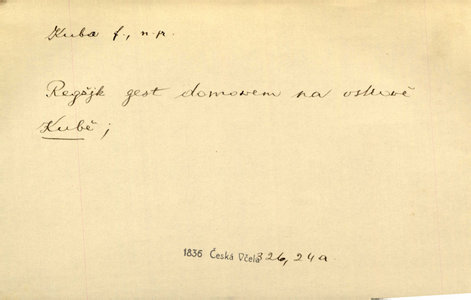 Kuba f., n. pr.
Regšjk gest domowem na ostrowě
Kubě;
1836 Česká Včela 326, 24a.